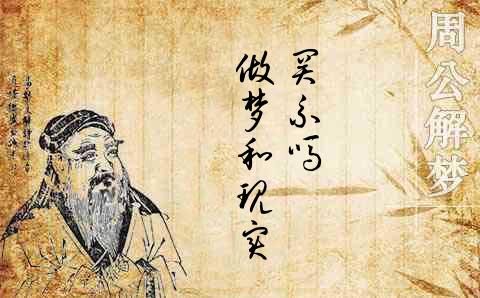 周公解梦
做梦和现实
关系吗